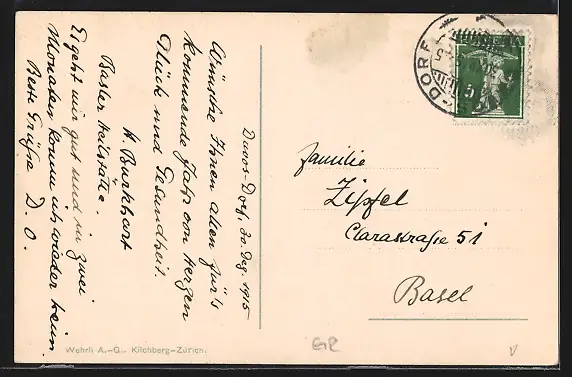 Davos-Dorf, 30. Dez. 1915
Wünsche Ihnen allen für's
kommende Jahr von Herzen
Glück und Gesundheit.
A. Burkhart
Basler Heilstätte.
Es geht mir gut und in zwei
Monaten komm ich wieder heim.
Beste Grüße D. O.
DORF
5
Familie
Zipfel
Clarastraße 51
Basel
Wehrli A.-G., Kilchberg-Zürich.
GR
v